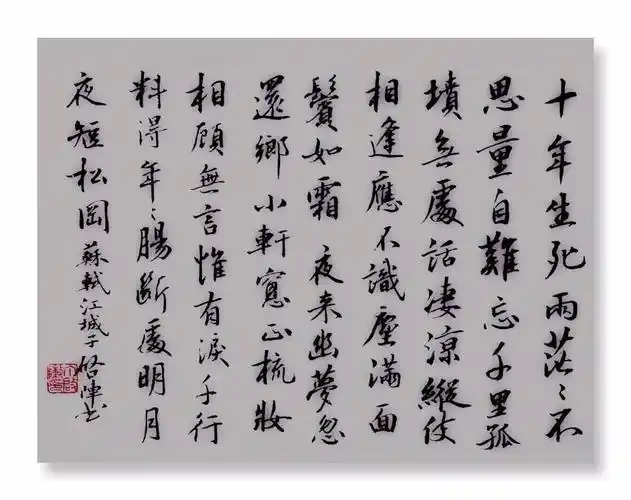 十年生死兩茫〻不
思量自難忘千里孤
墳无處話淒涼縱使
相逢應不識塵滿面
鬢如霜 夜来幽夢忽
還鄉小軒窓正梳妝
相顧無言惟有淚千行
料得年〻腸斷處明月
夜短松岡 蘇軾江城子 书